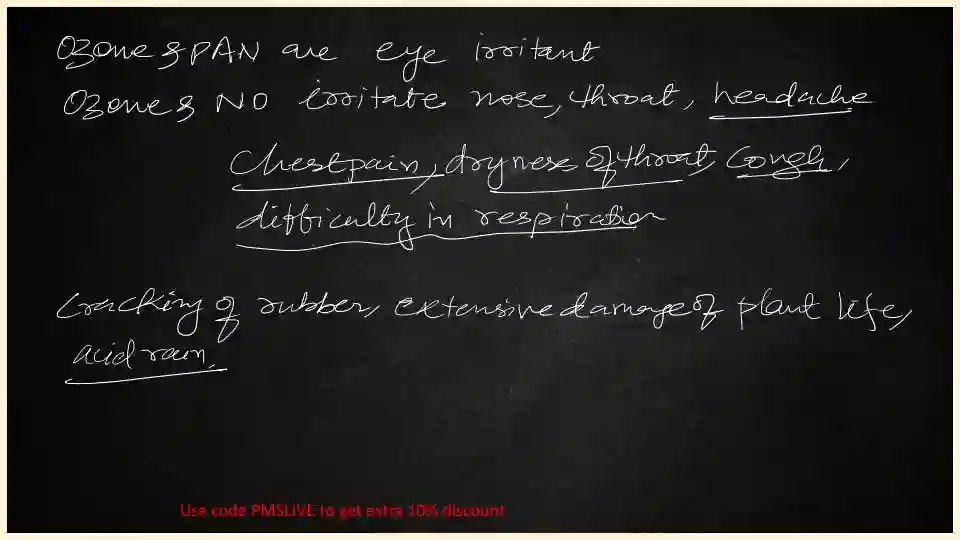 Ozone & PAN are eye irritant
Ozone & NO irritate nose, throat, headache
Chestpain, dryness of throat, cough,
difficulty in respiration
Cracking of rubber, extensive damage of plant life,
acid rain.
Use code PMSLIVE to get extra 10% discount